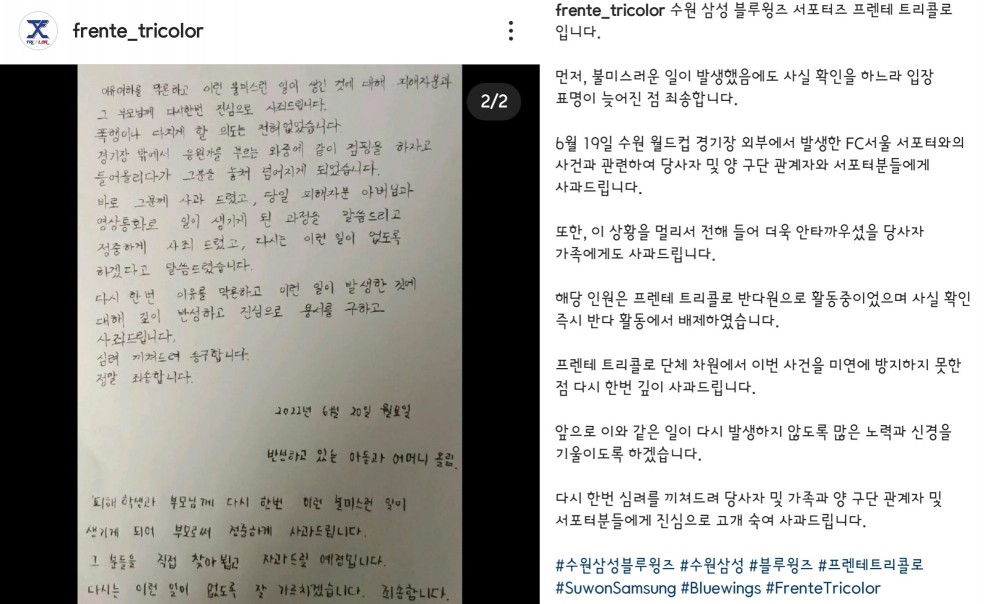 frente_tricolor
2/2
이유여하를 막론하고 이런 불미스런 일이 생긴 것에 대해 피해자분과
그 부모님께 다시한번 진심으로 사죄드립니다.
폭행이나 다치게 할 의도는 전혀 없었습니다.
경기장 밖에서 응원가를 부르는 와중에 같이 점핑을 하자고
들어올리다가 그분을 놓쳐 넘어지게 되었습니다.
바로 그분께 사과 드렸고, 당일 피해자분 아버님과
영상통화로 일이 생기게 된 과정을 말씀드리고
정중하게 사죄 드렸고, 다시는 이런 일이 없도록
하겠다고 말씀드렸습니다.
다시 한번 이유를 막론하고 이런 일이 발생한 것에
대해 깊이 반성하고 진심으로 용서를 구하고
사죄드립니다.
심려 끼쳐드려 송구합니다.
정말 죄송합니다.
2022년 6월 20일 월요일
반성하고 있는 아들과 어머니 올림.
피해 학생과 부모님께 다시 한번 이런 불미스런 일이
생기게 되어 부모로써 정중하게 사과드립니다.
그 분들을 직접 찾아뵙고 사과드릴 예정입니다.
다시는 이런 일이 없도록 잘 가르치겠습니다. 죄송합니다.
frente_tricolor 수원 삼성 블루윙즈 서포터즈 프렌테 트리콜로
입니다.
먼저, 불미스러운 일이 발생했음에도 사실 확인을 하느라 입장
표명이 늦어진 점 죄송합니다.
6월 19일 수원 월드컵 경기장 외부에서 발생한 FC서울 서포터와의
사건과 관련하여 당사자 및 양 구단 관계자와 서포터분들에게
사과드립니다.
또한, 이 상황을 멀리서 전해 들어 더욱 안타까우셨을 당사자
가족에게도 사과드립니다.
해당 인원은 프렌테 트리콜로 반다원으로 활동중이었으며 사실 확인
즉시 반다 활동에서 배제하였습니다.
프렌테 트리콜로 단체 차원에서 이번 사건을 미연에 방지하지 못한
점 다시 한번 깊이 사과드립니다.
앞으로 이와 같은 일이 다시 발생하지 않도록 많은 노력과 신경을
기울이도록 하겠습니다.
다시 한번 심려를 끼쳐드려 당사자 및 가족과 양 구단 관계자 및
서포터분들에게 진심으로 고개 숙여 사과드립니다.
#수원삼성블루윙즈 #수원삼성 #블루윙즈 #프렌테트리콜로
#SuwonSamsung #Bluewings #FrenteTricolor